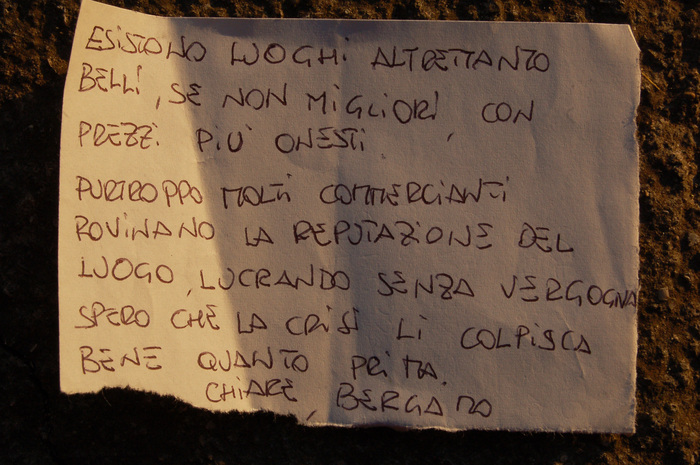 ESISTONO LUOGHI ALTRETTANTO
BELLI, SE NON MIGLIORI, CON
PREZZI PIU' ONESTI
PURTROPPO MOLTI COMMERCIANTI
ROVINANO LA REPUTAZIONE DEL
LUOGO, LUCRANDO SENZA VERGOGNA
SPERO CHE LA CRISI LI COLPISCA
BENE QUANTO PRIMA.
CHIARE, BERGAMO